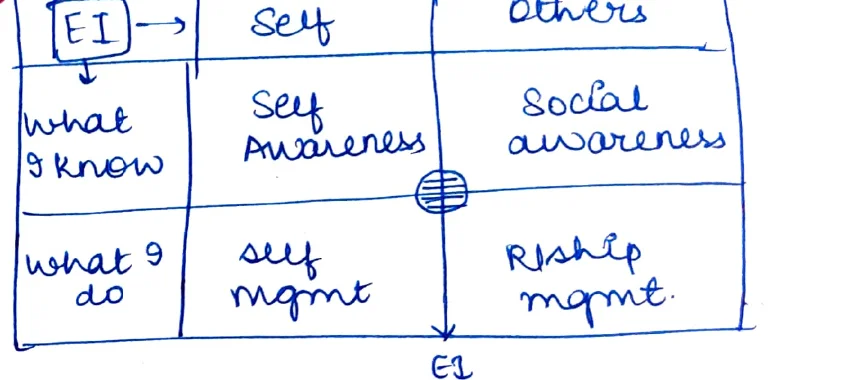 EI → Self Others
What I know
Self Awareness
Social awareness
What I do
Self mgmt
R/ship mgmt.
EI